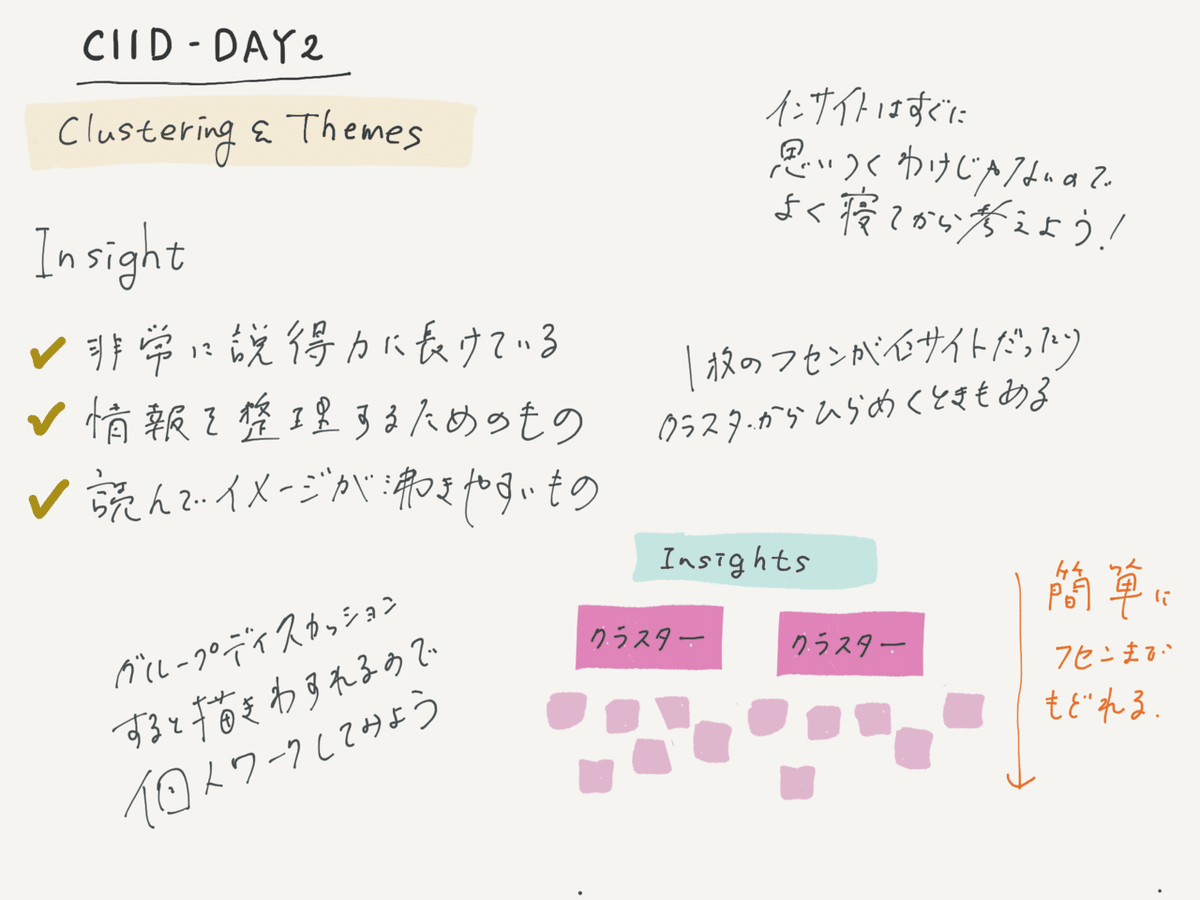 CIID - DAY2
Clustering & Themes
Insight
非常に説得力に長けている
情報を整理するためのもの
読んでイメージが沸きやすいもの
インサイトはすぐに
思いつくわけじゃないので
よく寝てから考えよう!
1枚のフセンがインサイトだったり
クラスターからひらめくときもある
グループディスカッション
すると描きわすれるので
個人ワークしてみよう
Insights
クラスター
クラスター
簡単に
フセンまで
もどれる.